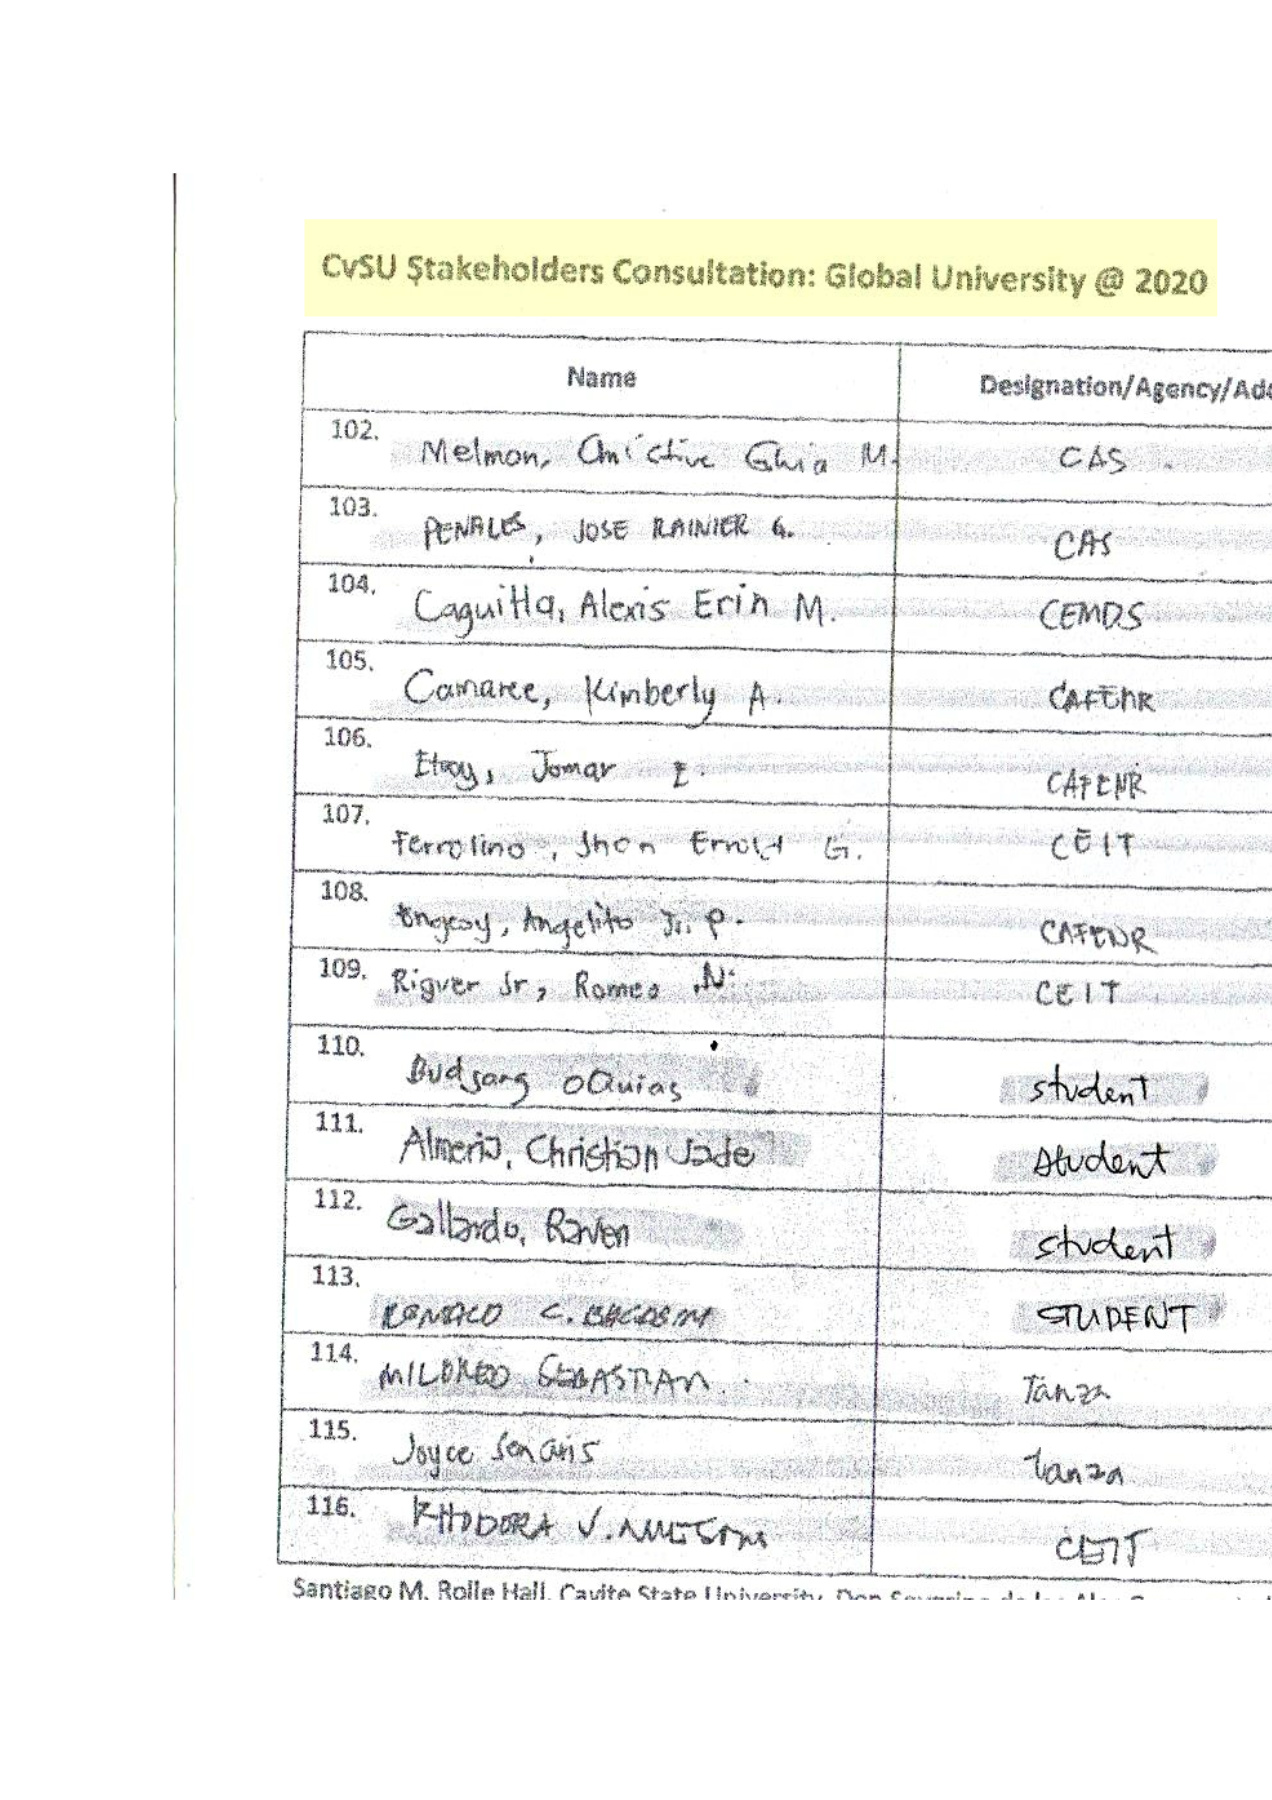 CvSU Stakeholders Consultation: Global University @ 2020
Name
Designation/Agency/Add
102.
Melmon, Christine Ghia M.
CAS
103.
PENALES, JOSE RAINIER G.
CAS
104.
Caguitla, Alexis Erin M.
CEMDS
105.
Camaree, Kimberly A.
CAFENR
106.
Jomar
CAFENR
107.
Ferrolino, Jhon Errold G.
CEIT
108.
Angelito Jr. P.
CAFENR
109. Romeo N.
CEIT
110.
student
111.
Almeria, Christian Jade
student
112.
Gallardo, Raven
student
113.
C.
STUDENT
114.
MILDRED SEBASTIAN
Tanza
115.
Joyce
Tanza
116.
RHODORA V.
CEIT
Santiago M. Rolle Hall, Cavite State University, Don Severino de las Alas